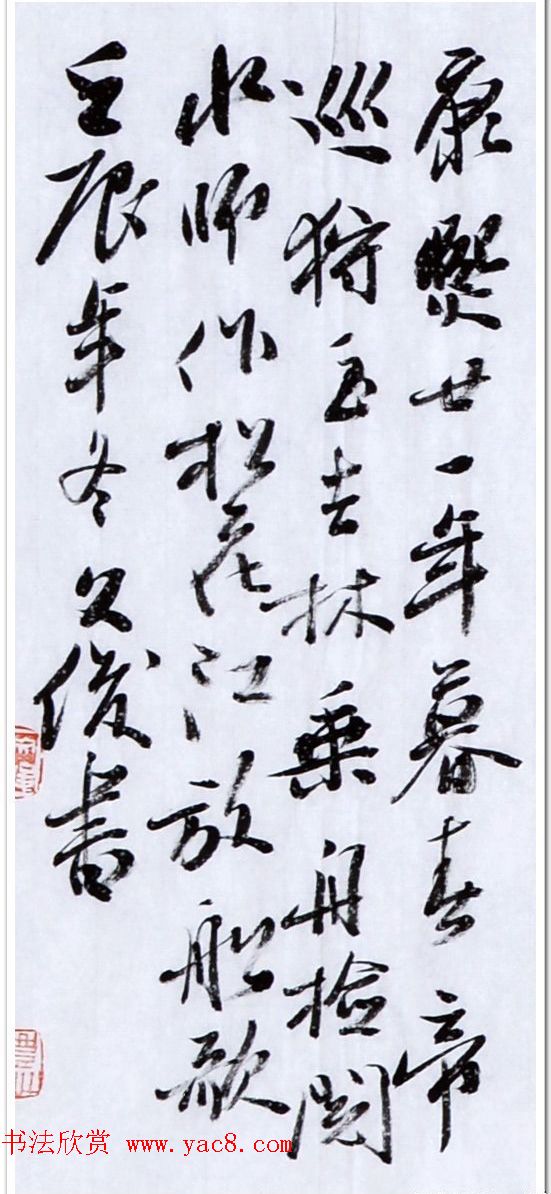 康熙廿一年暮春帝
巡狩至吉林乘舟检阅
水师作松花江放船歌
壬辰年冬 俊书
书法欣赏 www.yac8.com